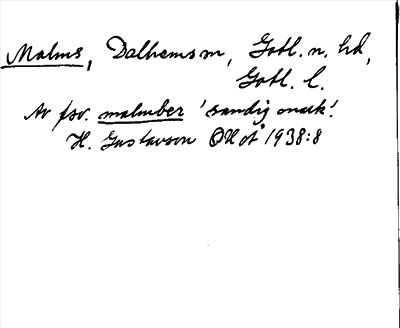 Malms, Dalhems sn, Gotl. n. hd,
Gotl. l.
Av fsv. malmber 'sandig mark'.
H. Gustavson OUÅ 1938:8